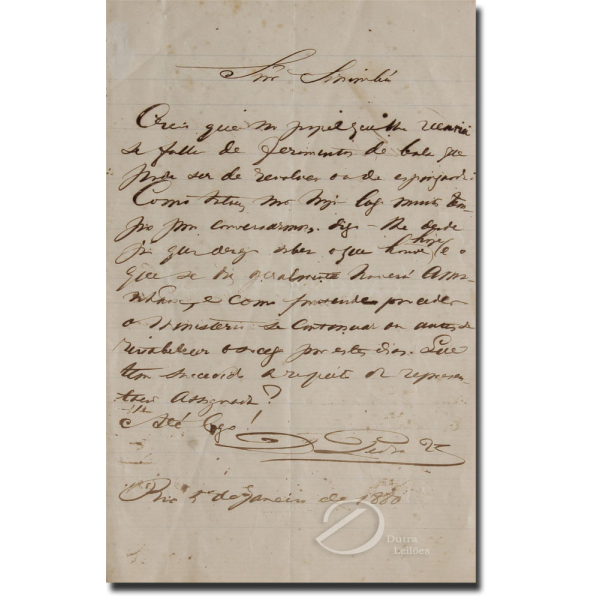 Snr. Sinimbú
Creio que no papel que lhe
se falla de ferimentos de bala que
pode ser de revolver ou de espingarda
Como talvez não haja logo muito tem-
po por conversarmos, digo-lhe desde
já que desejo saber o que houve hoje e o
que se diz geralmente haverá
e como pretende proceder
o Ministerio se continuar ou antes de
restabelecer o socego por estes dias. Que
tem succedido a respeito de represen-
tação assignada?
Até logo!
D. Pedro 2º
Rio 5 de Janeiro de 1880
Dutra
Leilões